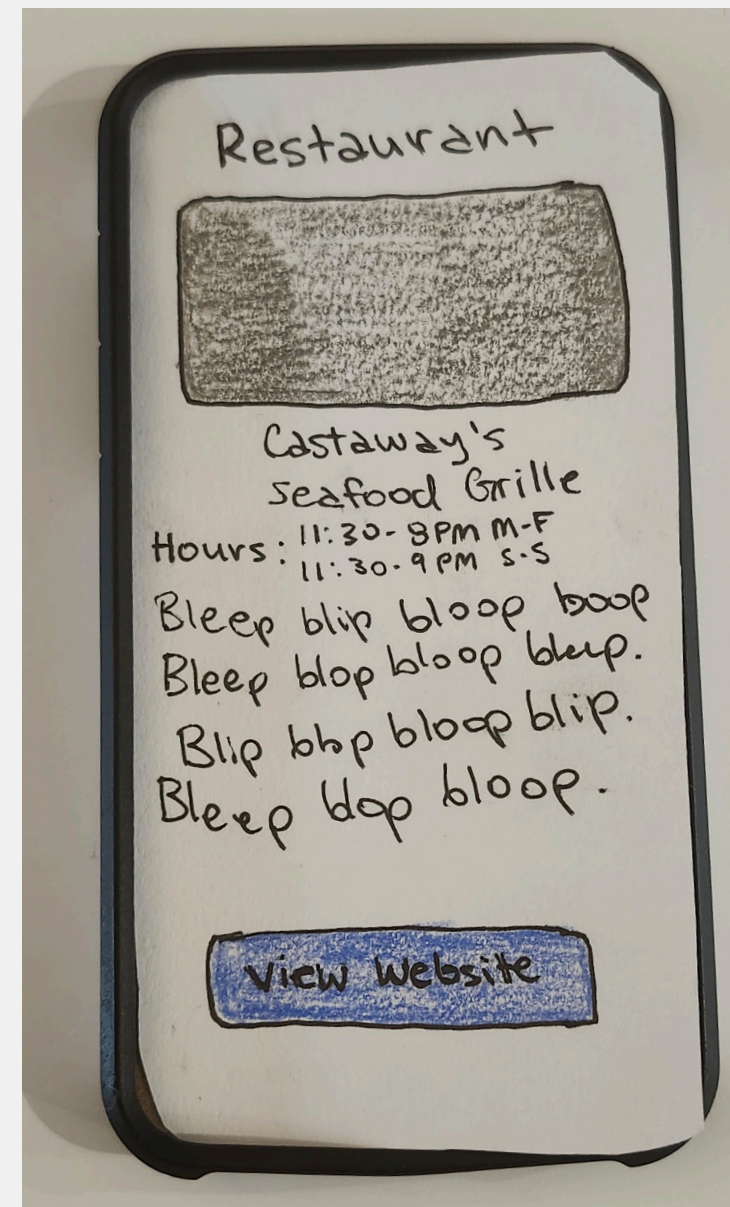 Restaurant
Castaway's
Seafood Grille
Hours: 11:30-8PM M-F
11:30-9PM S-S
Bleep blip bloop boop
Bleep blop bloop bleep.
Blip blop bloop blip.
Bleep blop bloop.
View Website